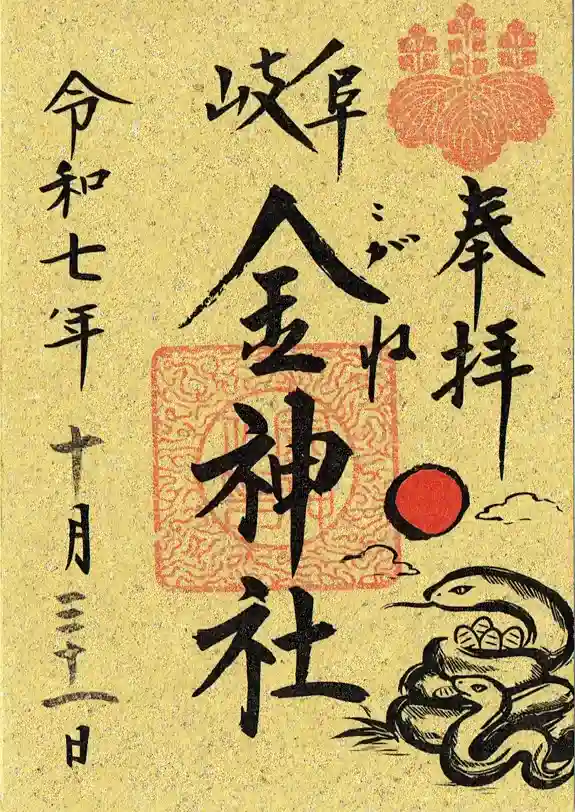 奉拝
岐阜
こがね
金神社
令和七年十月三十一日